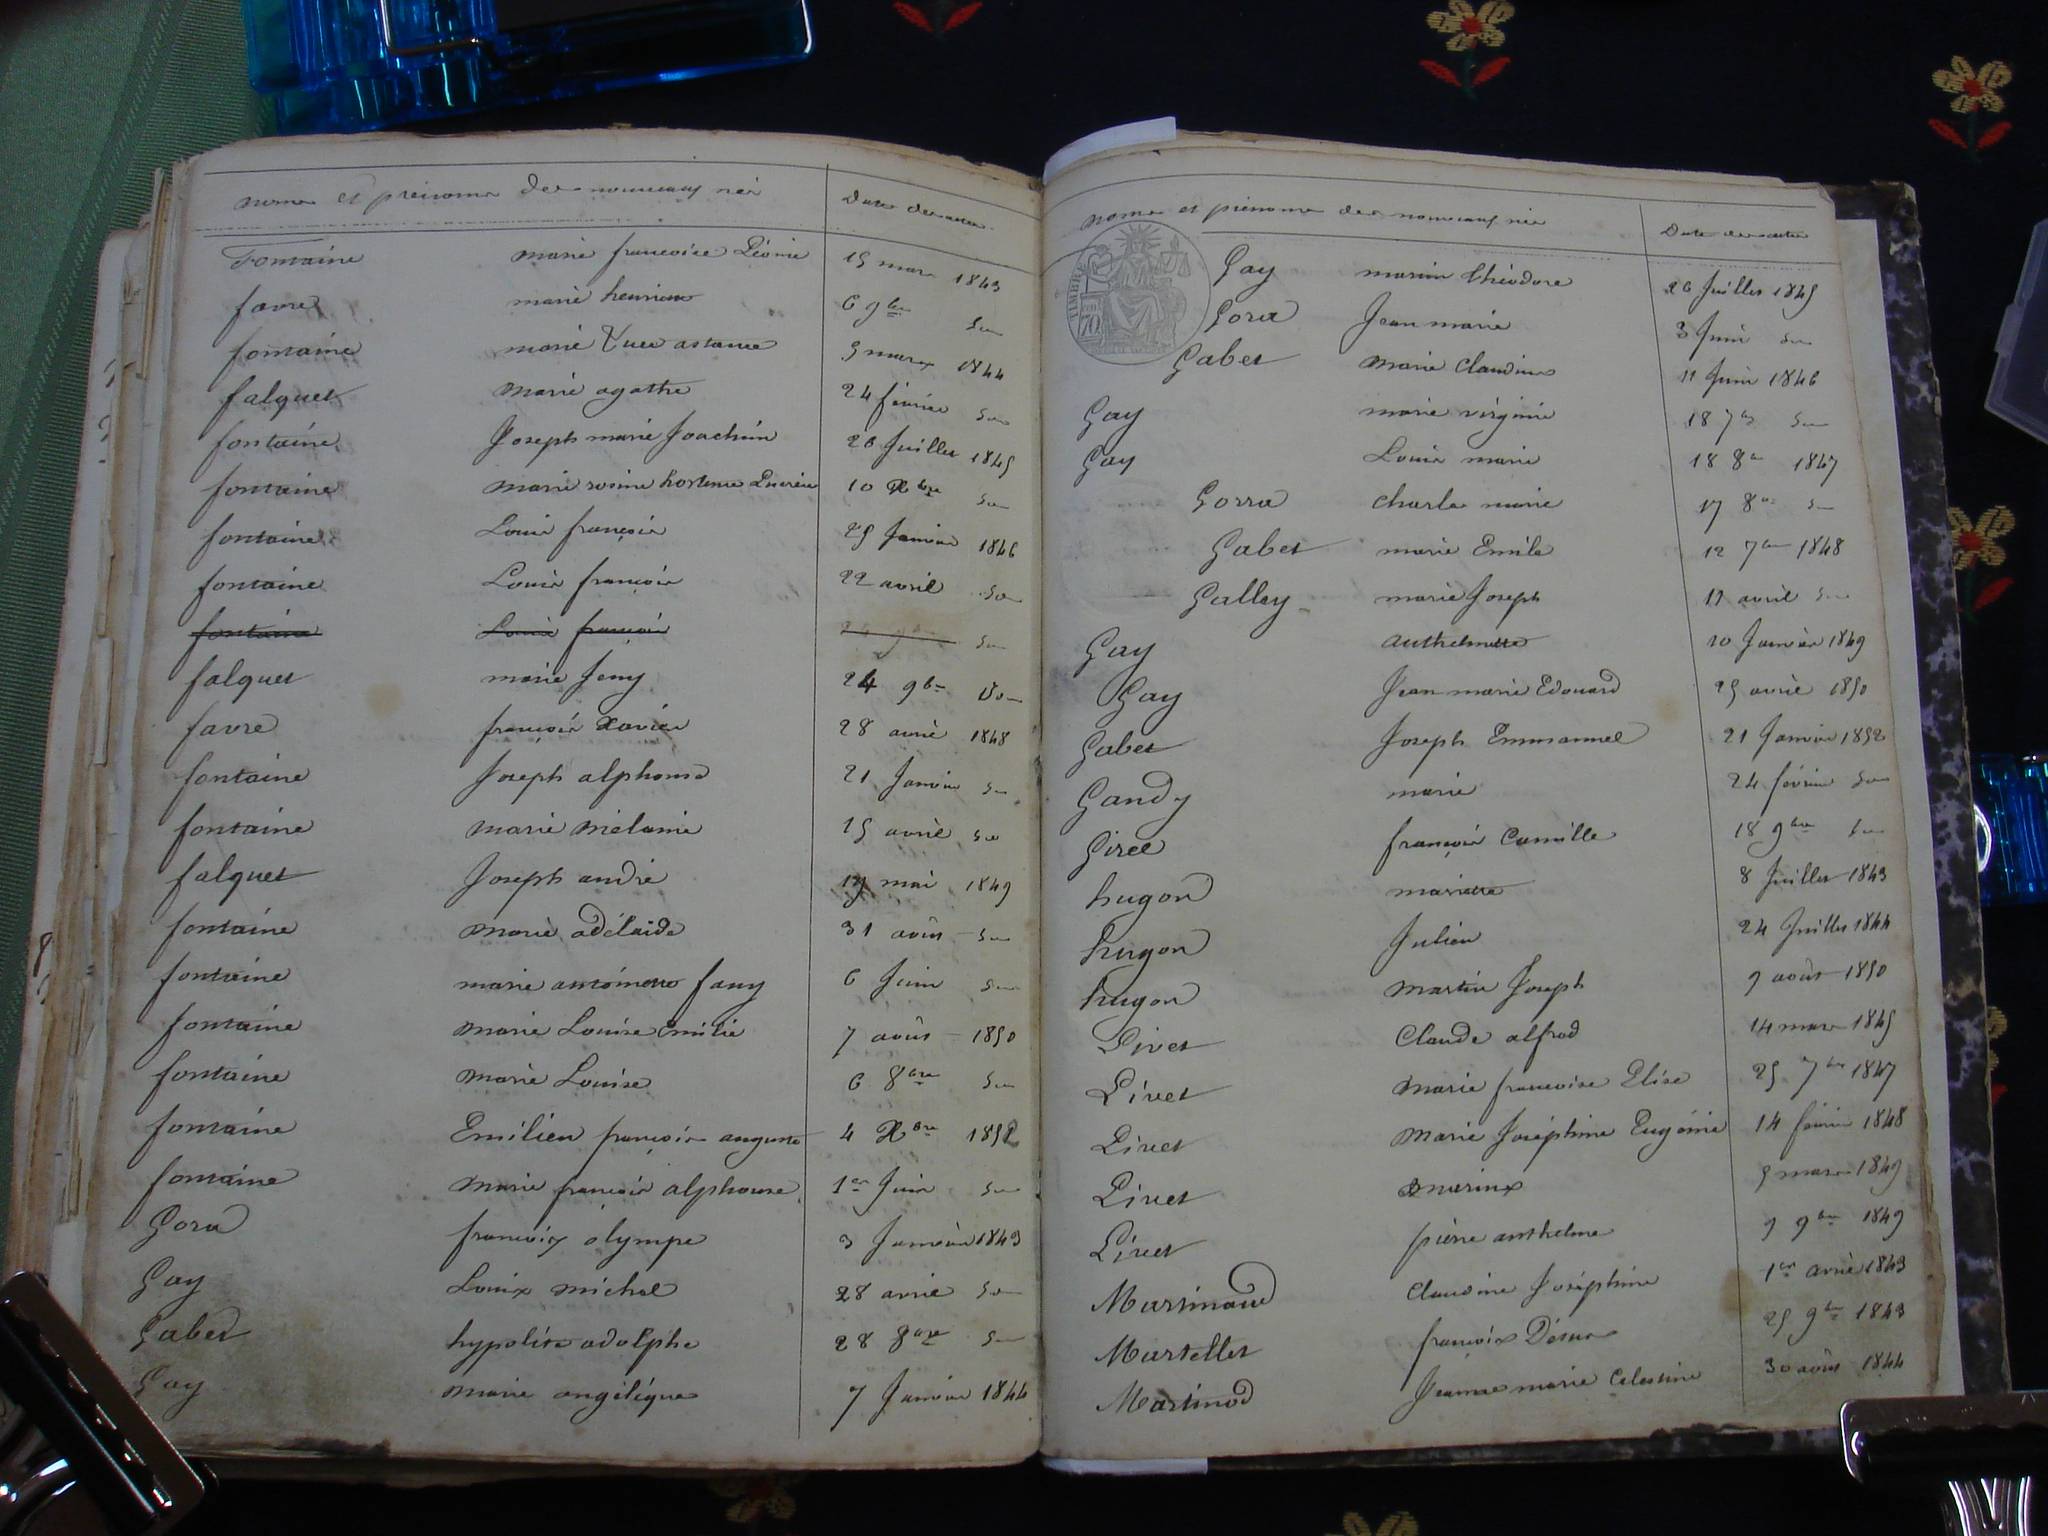 noms et prénoms des nouveaux nés Date des actes
Fontaine marie francoise Léonie 15 mars 1843
favre marie henriette 6 9bre Do
fontaine marie 5 mars 1844
falquet marie agathe 24 février Do
fontaine Joseph marie Joachim 26 Juillet 1845
fontaine marie rosine hortense Lucrèce 10 Xbre Do
fontaine Louis françois 25 Janvier 1846
fontaine Louis françois 22 avril Do
fontaine Louis françois 24 9bre Do
falquet marie Jeny 24 9bre Do
favre françois Xavier 28 avril 1848
fontaine Joseph alphonse 21 Janvier Do
fontaine marie Mélanie 15 avril Do
falquet Joseph andré mai 1849
fontaine marie adélaide 31 août Do
fontaine marie antoinette fany 6 Juin Do
fontaine marie Louise Emilie 7 août 1850
fontaine marie Louise 6 8bre Do
fontaine Emilien françois auguste 4 Xbre 1852
fontaine marie françois alphonse 1er Juin Do
Gora françois olympe 3 Janvier 1843
Gay Louis michel 28 avril Do
Gabet hypolite adolphe 28 8bre Do
Gay marie angélique 7 Janvier 1844
noms et prénoms des nouveaux nés Date des actes
TIMBRE
70
Gay marin théodore 26 Juillet 1845
Gora Jean marie 3 Juin Do
Gabet marie Claudine 11 Juin 1846
Gay marie virginie 18 7bre Do
Gay Louis marie 18 8bre 1847
Gorra charles marie 17 8bre Do
Gabet marie Emile 12 7bre 1848
Galley marie Joseph 11 avril Do
Gay anthelmette 10 Janvier 1849
Gay Jean marie Edouard 25 avril 1850
Gabet Joseph Emmanuel 21 Janvier 1852
Gandy marie 24 février Do
Girel françois Camille 18 9bre Do
hugon mariette 8 Juillet 1843
hugon Julien 24 Juillet 1844
hugon martin Joseph 9 août 1850
Livet Claude alfred 14 mars 1845
Livet marie francoise Elise 25 7bre 1847
Livet Marie Joséphine Eugénie 14 février 1848
Livet marius 5 mars 1849
Livet pierre anthelme 9 9bre 1849
Martinaud Claudine Joséphine 1er avril 1843
Martellet françois Désiré 25 9bre 1843
Martinod Jeanne marie Celestine 30 août 1844